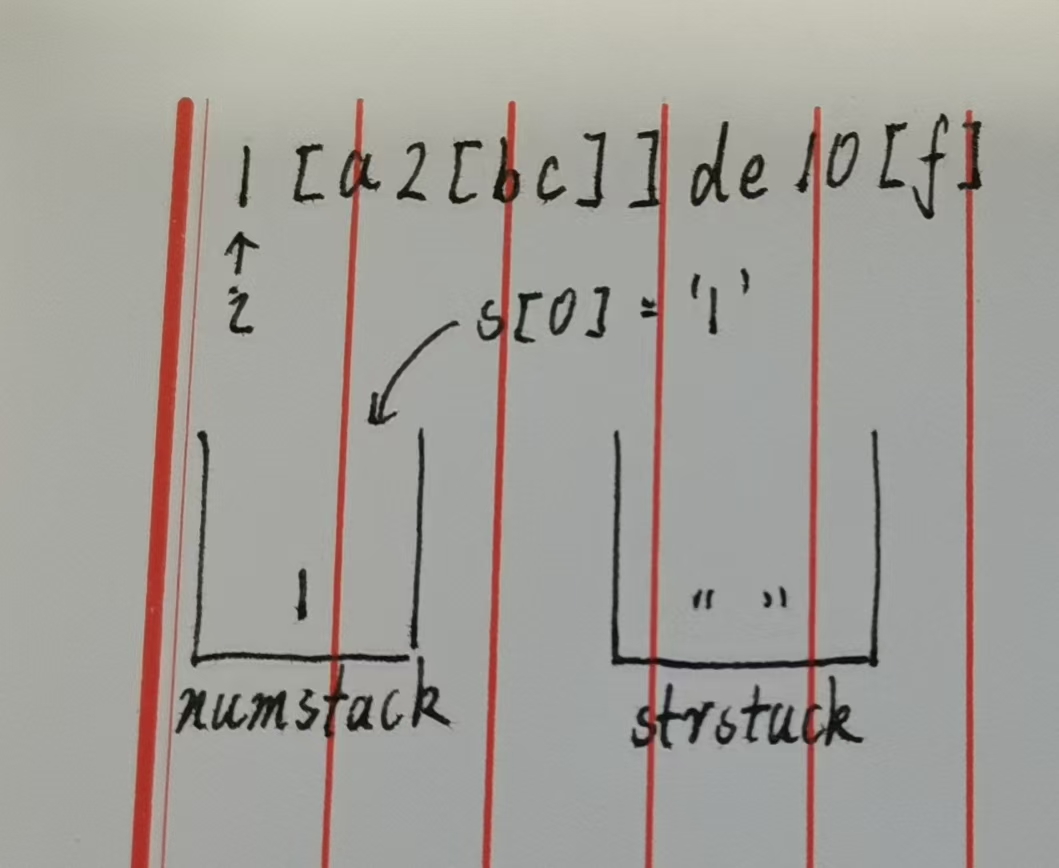 1 [a2[bc]]de10[f]
↑
i
s[0] = '1'
1
“ ”
numstack strstack